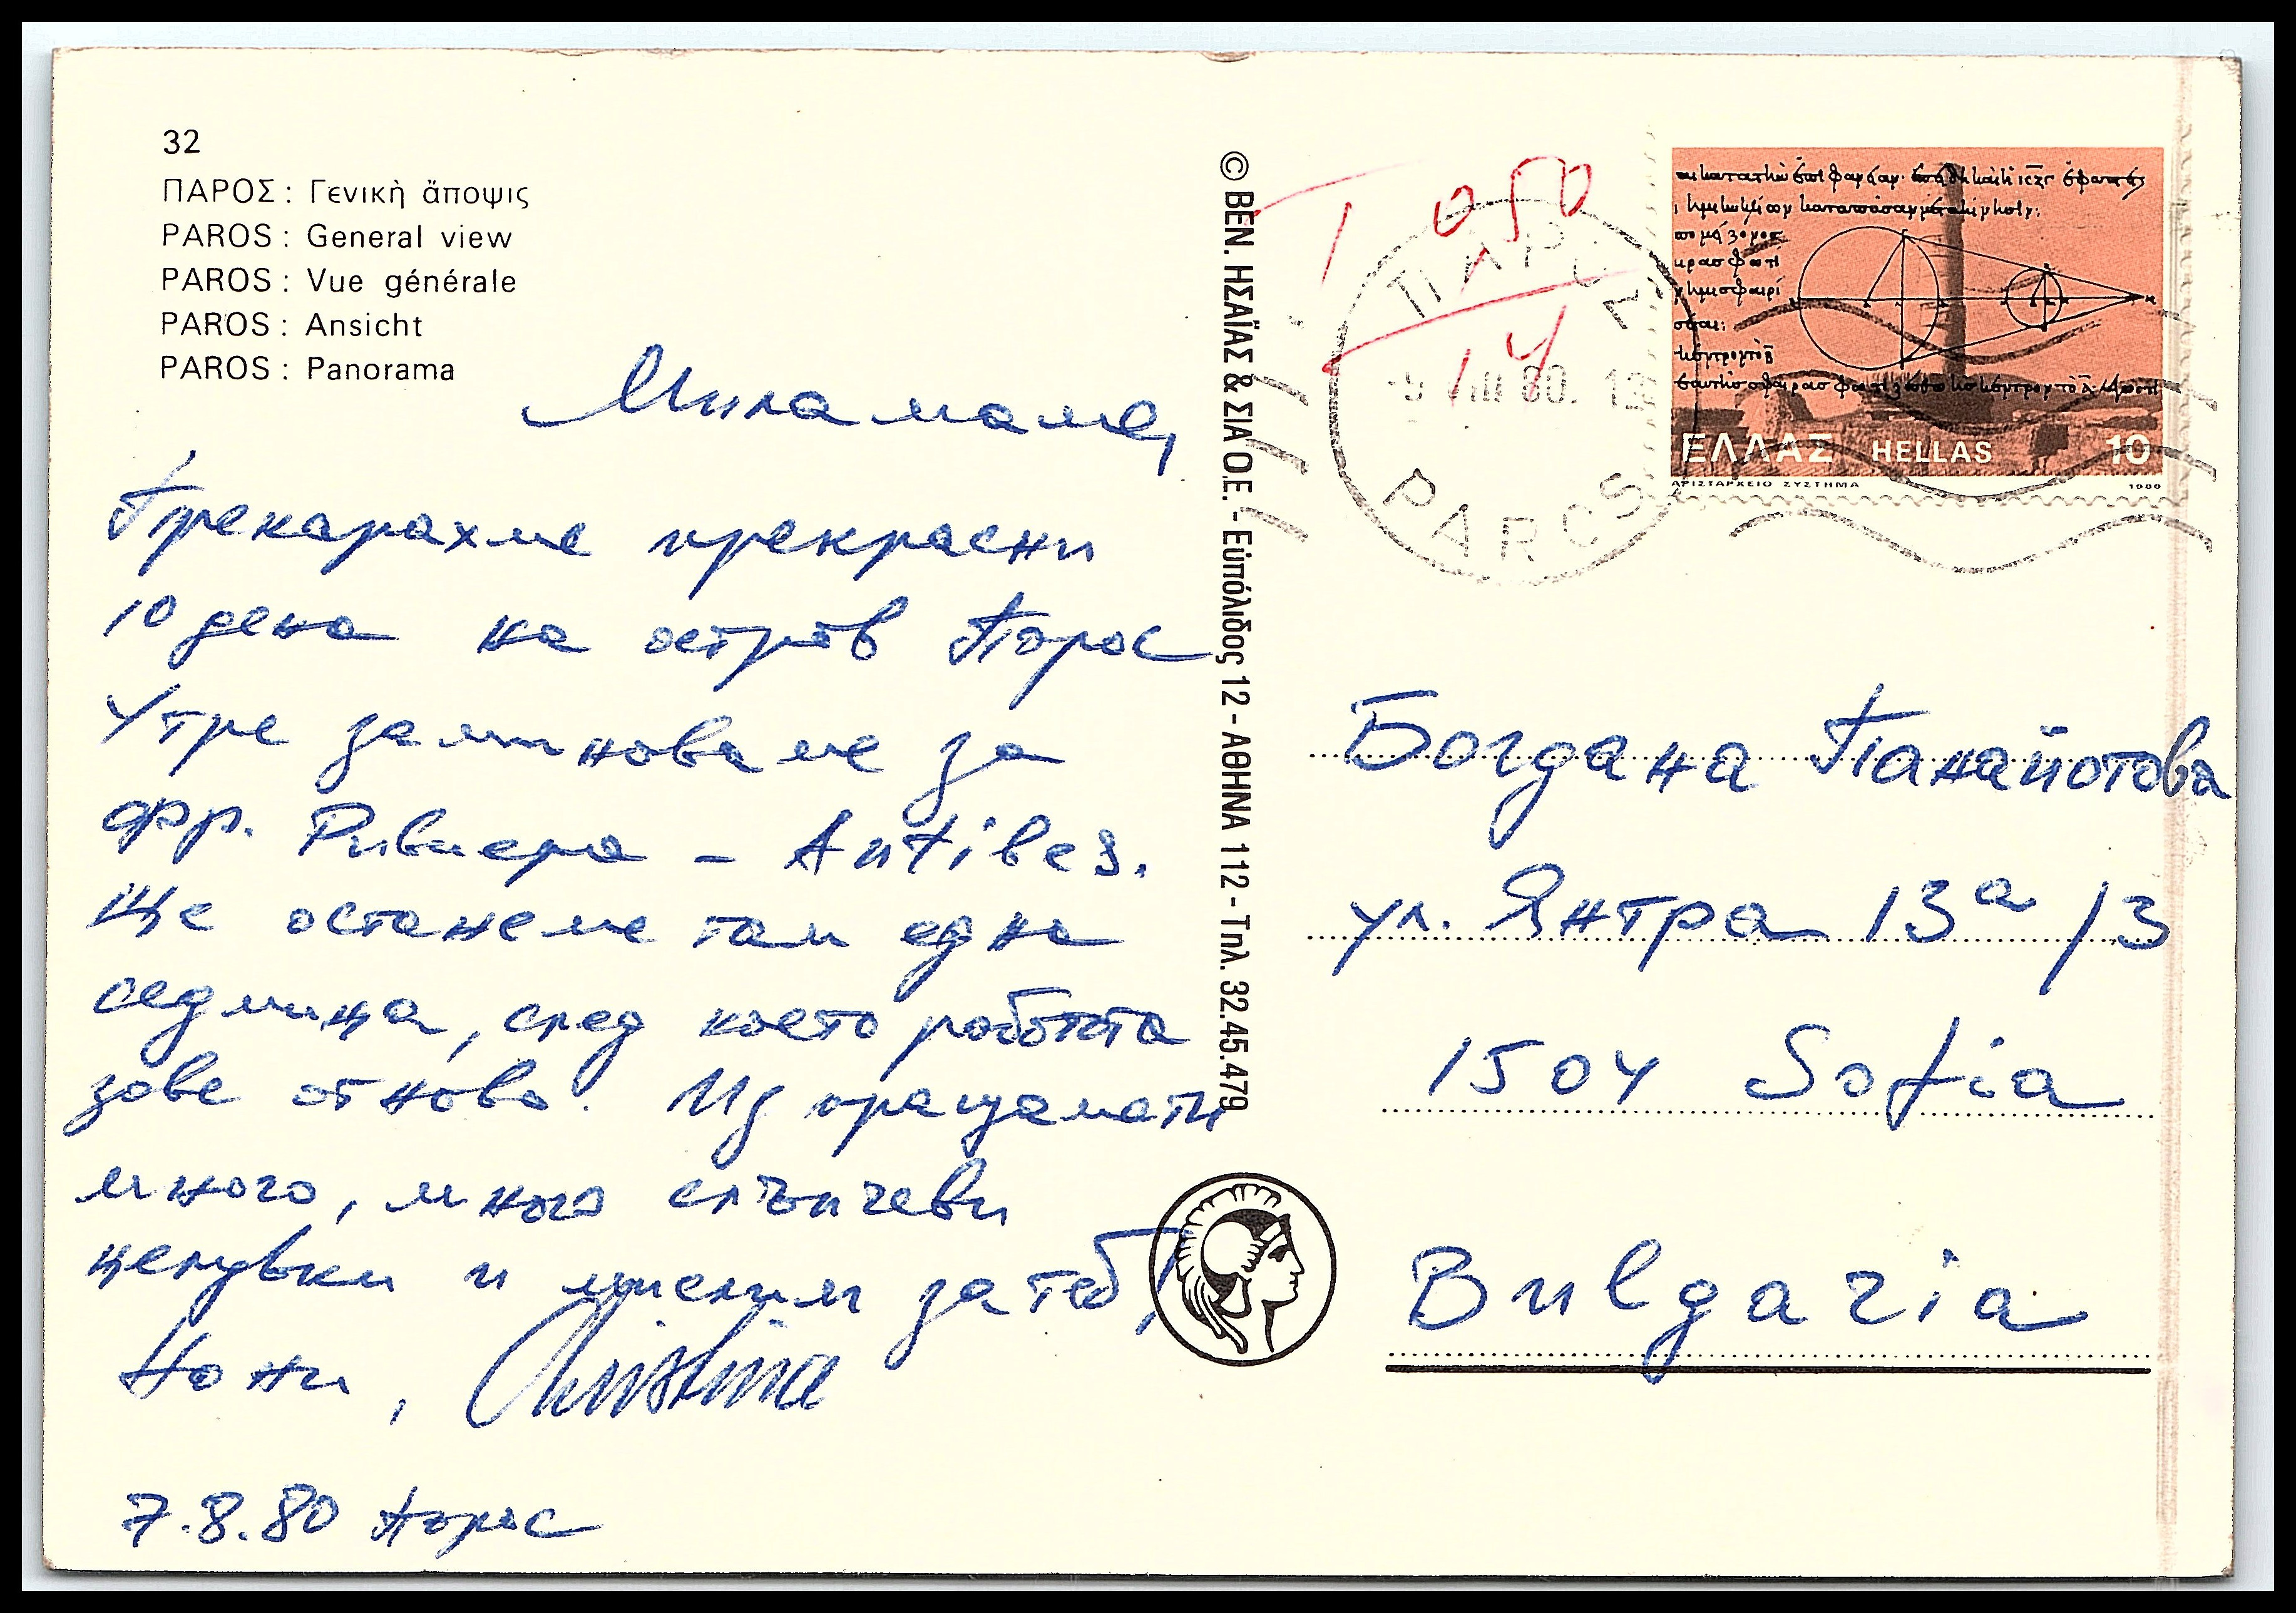 32
ΠΑΡΟΣ : Γενικὴ ἄποψις
PAROS : General view
PAROS : Vue générale
PAROS : Ansicht
PAROS : Panorama
Мила мама,
Прекарахме прекрасни
10 дена на остров Парос
Утре заминаваме за
фр. Ривиера – Antibes.
Ще останеме там една
седмица, след което работата
зове отново. Изпращамети
много, много слънчеви
целувки и мислим за теб,
Нони, Christina
7.8.80 Парос
© ΒΕΝ. ΗΣΑΪΑΣ & ΣΙΑ Ο.Ε. - Εὐπόλιδος 12 - ΑΘΗΝΑ 112 - Τηλ. 32.45.479
T 050
14
ΠΑΡΟΣ
PAROS
ΕΛΛΑΣ HELLAS 10
ΑΡΙΣΤΑΡΧΕΙΟ ΣΥΣΤΗΜΑ 1980
Богдана Панайотова
ул. Янтра 13а /3
1504 Sofia
Bulgaria